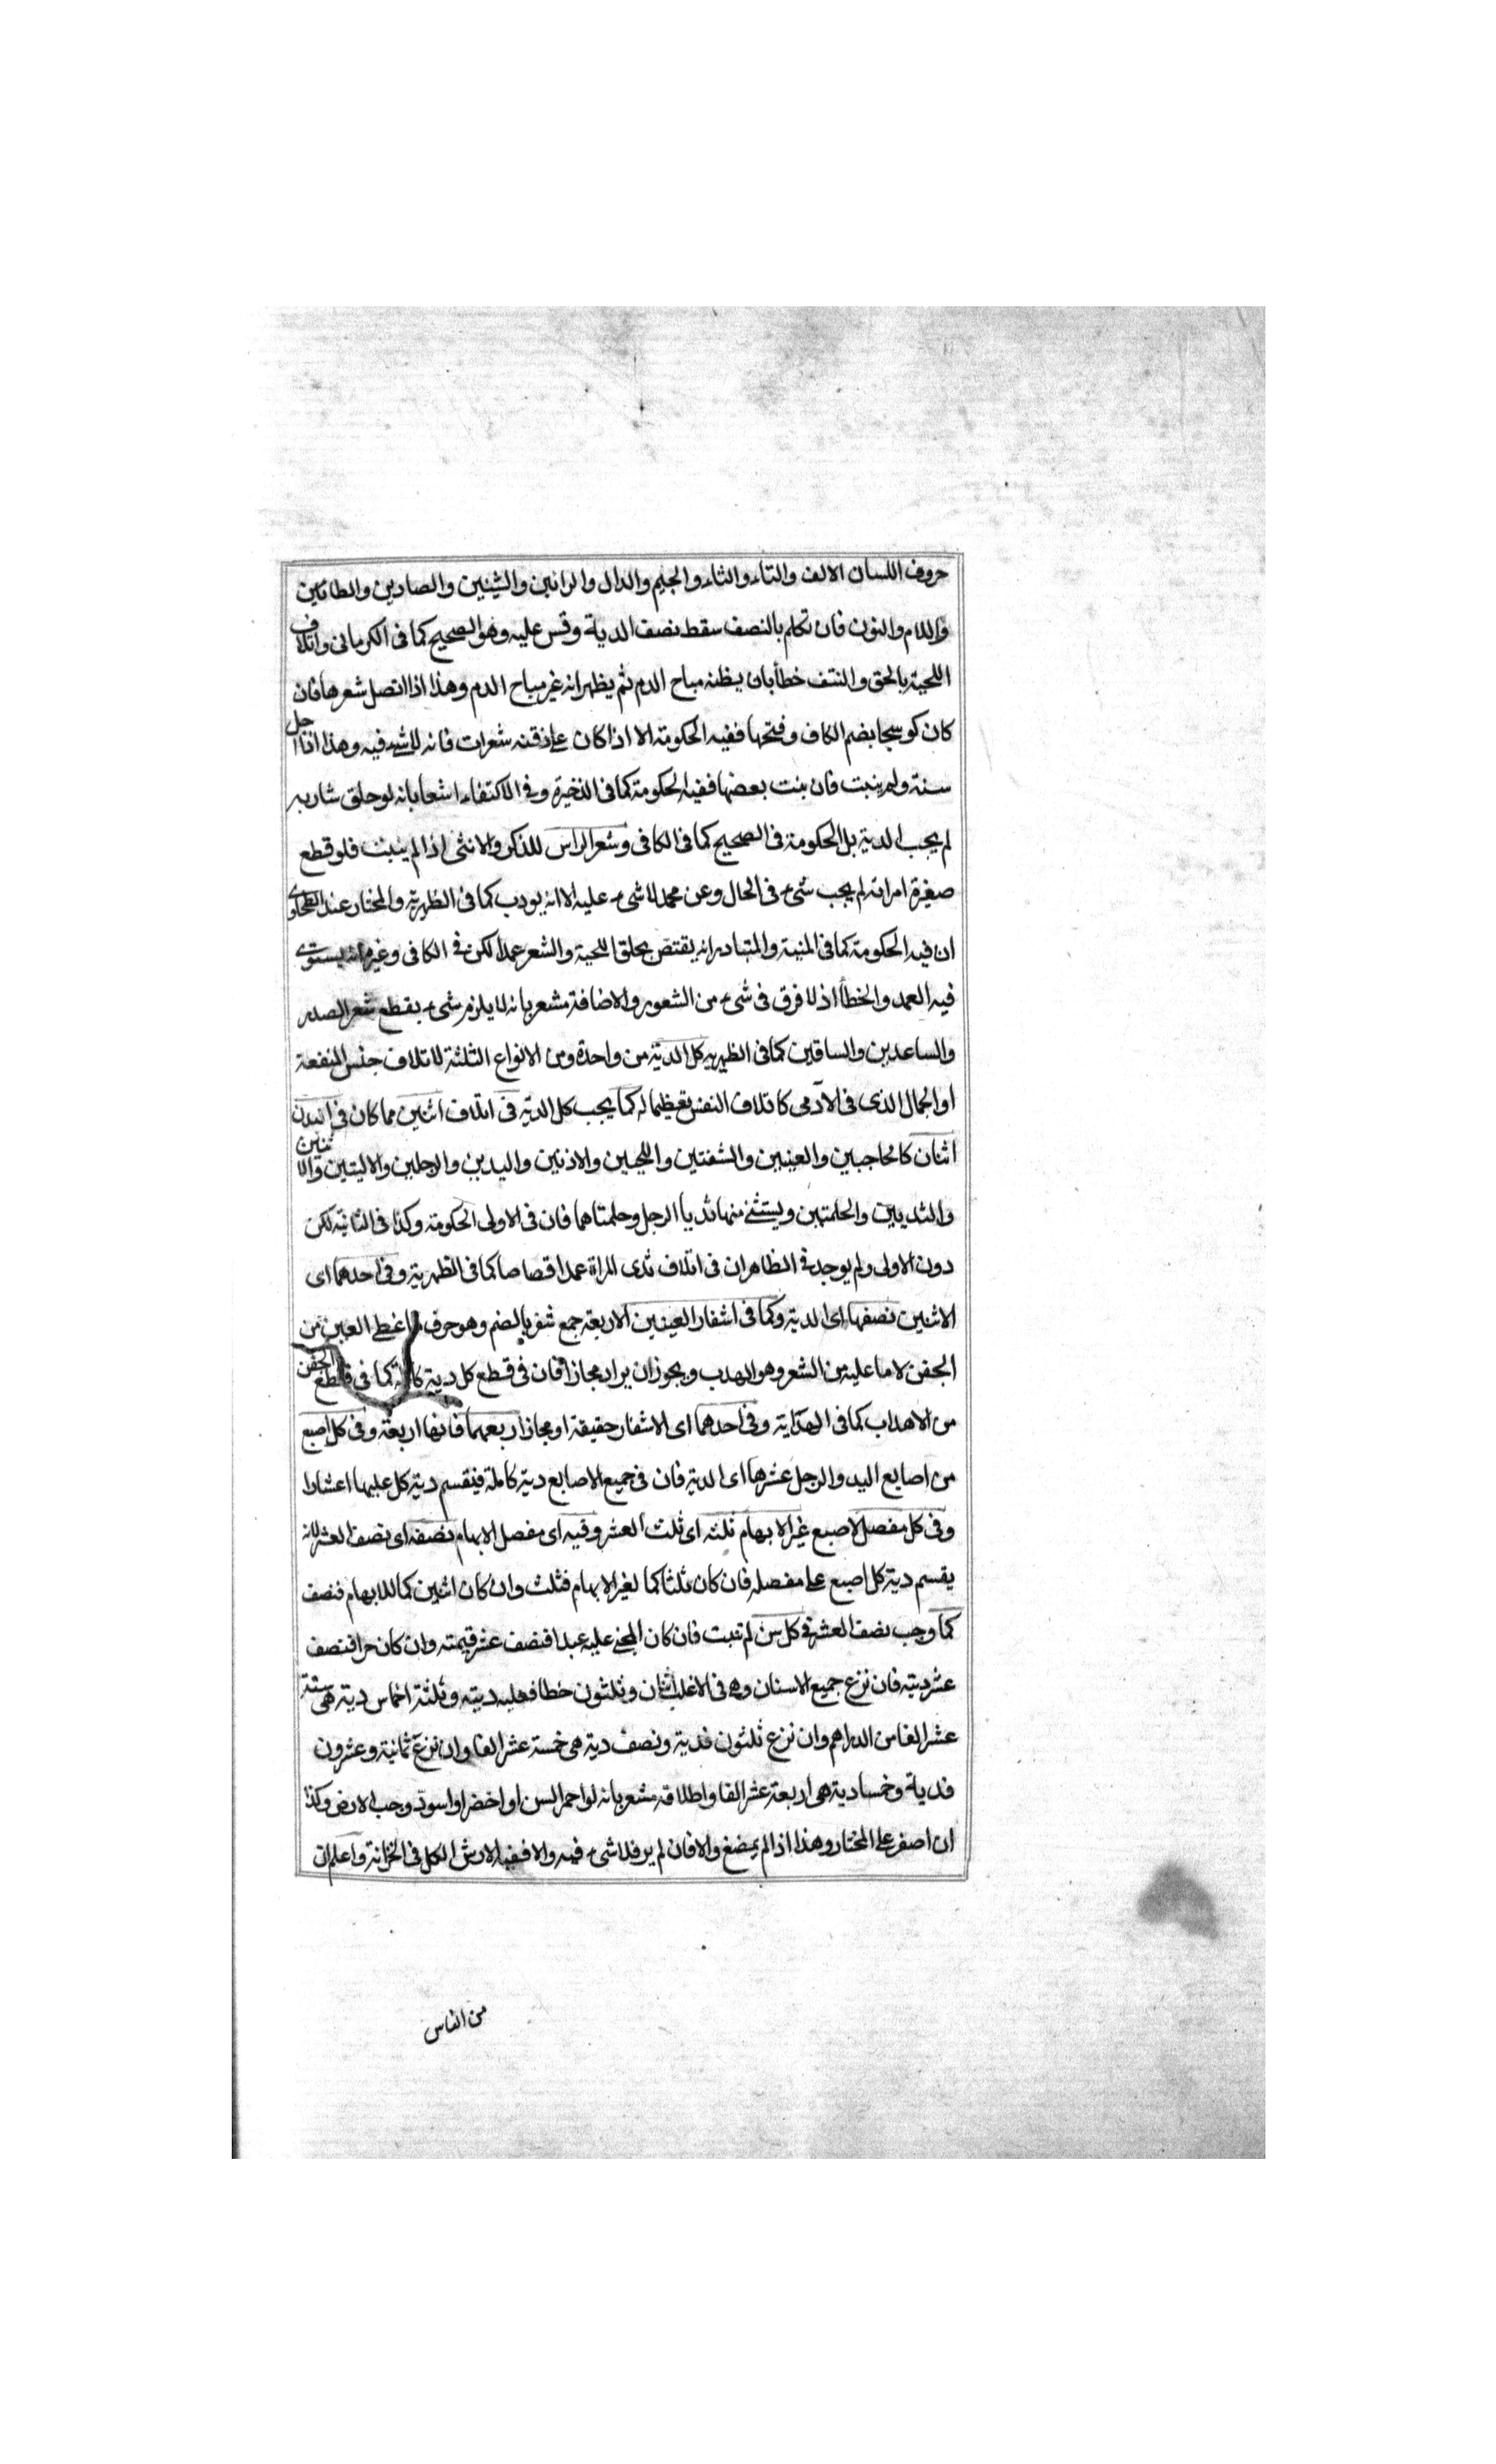 حروف اللسان الالف والتاء والثاء والجيم والدال والرائين والشينين والصادين والطائين
واللام والنون فان تكلم بالنصف سقط نصف الدية وقس عليه وهو الصحيح كما فى الكرمانى واتلاف
اللحية بالحق والنتف خطأ بان يظنه مباح الدم ثم يظهر انه غير مباح الدم وهذا اذا اتصل شعرها فان
كان كوسجا بضم الكاف وفتحها ففيه الحكومة الا اذا كان على ذقنه شعرات فانه لا شئ فيه وهذا اذا اجل
سنة ولم ينبت فان بنت بعضها ففيه الحكومة كما فى الذخيرة وفى الاكتفاء اشعا بانه لو حلق شاربه
لم يجب الدية بل الحكومة فى الصحيح كما فى الكافى وشعر الراس للذكر والانثى اذا لم ينبت فلو قطع
صغيرة امراته لم يجب شىء فى الحال وعن محمد لا شىء عليه الا انه يودب كما فى الظهرية والمختار عند الطحاوى
ان فيه الحكومة كما فى المنية والمتبادر انه يقتص بحلق اللحية والشعر عمدا لكن فى الكافى وغيره انه يستوى
فيه العمد والخطأ اذ لا فرق فى شىء من الشعور والاضافة مشعر بانه لا يلزم شىء بقطع شعر الصدر
والساعدين والساقين كما فى الظهيريه كل الدية من واحدة ومن الانواع الثلثة لاتلاف جنس المنفعة
او الجمال الذى فى الآدمى كاتلاف النفس تعظيما له كما يجب كل الدية فى اتلاف اثنين مما كان فى البدن
اثنان كالحاجبين والعينين والشفتين واللحيين والاذنين واليدين والرجلين والاليتين والانثنين
والثديين والحلمتين ويستثنى منها ثديا الرجل وحلمتاهما فان فى الاولى الحكومة وكذا فى الثانية لكن
دون الاولى ولم يوجد فى الظاهر ان فى اتلاف ثدى المراة عمدا قصاصا كما فى الظهرية وفى احدهما اى
الاثنين نصفها اى الدية وكما فى اشفار العينين الاربعة جمع شفر بالضم وهو حرف ما غطى العين من
الجفن لا ما عليه من الشعر وهو الهدب ويجوز ان يراد مجازا فان فى قطع كل دية كاملة كما فى قطع الجفن
من الاهداب كما فى الهداية وفى احدهما اى الاشفار حقيقة او مجازا ربعهما فانها اربعة وفى كل اصبع
من اصابع اليد والرجل عشرها اى الدية فان فى جميع الاصابع دية كاملة فينقسم دية كل عليها اعشارا
وفى كل مفصل لاصبع غير الابهام ثلثه اى ثلث العشر وفيه اى مفصل الابهام نصفه اى نصف العشر لانه
يقسم دية كل اصبع على مفصله فان كان ثلثا كما لغير الابهام فثلث وان كان اثنين كما للابهام فنصف
كما وجب نصف العشر فى كل سن لم تنبت فان كان المجنى عليه عبدا فنصف عشر قيمته وان كان حرا فنصف
عشر ديته فان نزع جميع الاسنان وهى فى الاغلب اثنان وثلثون خطا فعليه ديته وثلثة اخماس دية هى ستة
عشر الفا من الدراهم وان نزع ثلثون فدية ونصف دية هى خمسة عشر الفا وان نزع ثمانية وعشرون
فدية وخمسا دية هى اربعة عشر الفا واطلاقه مشعر بانه لو احمر السن او اخضر او اسود وجب الارض وكذا
ان اصفر على المختار وهذا اذا لم يمضغ والا فان لم ير فلا شىء فيه والا ففيه الارش الكل فى الخزانة واعلم ان
من الناس